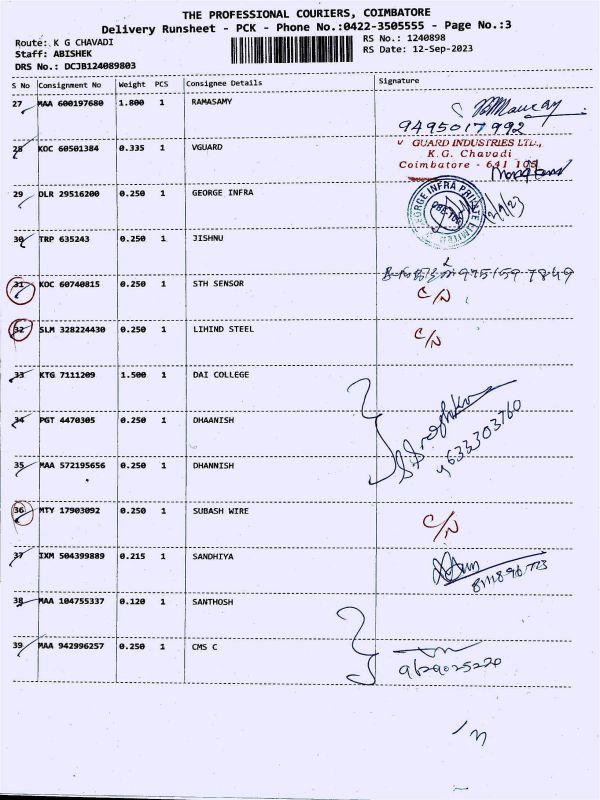 THE PROFESSIONAL COURIERS, COIMBATORE
Delivery Runsheet - PCK - Phone No.:0422-3505555 - Page No.:3
Route: K G CHAVADI
RS No.: 1240898
Staff: ABISHEK
RS Date: 12-Sep-2023
DRS No.: DCJB124089803
S No Consignment No Weight PCS Consignee Details Signature
27 MAA 600197680 1.800 1 RAMASAMY
9495017992
28 KOC 60501384 0.335 1 VGUARD
V GUARD INDUSTRIES LTD.,
K.G. Chavadi
Coimbatore - 641 105
29 DLR 29516200 0.250 1 GEORGE INFRA
GEORGE INFRA PRIVATE LIMITED
30 TRP 635243 0.250 1 JISHNU
31 KOC 60740815 0.250 1 STH SENSOR
C/N
32 SLM 328224430 0.250 1 LIHIND STEEL
C/N
33 KTG 7111209 1.500 1 DAI COLLEGE
34 PGT 4470305 0.250 1 DHAANISH
9633303760
35 MAA 572195656 0.250 1 DHANNISH
36 MTY 17903092 0.250 1 SUBASH WIRE
C/N
37 IXM 504399889 0.215 1 SANDHIYA
38 MAA 104755337 0.120 1 SANTHOSH
39 MAA 942996257 0.250 1 CMS C
9629025220